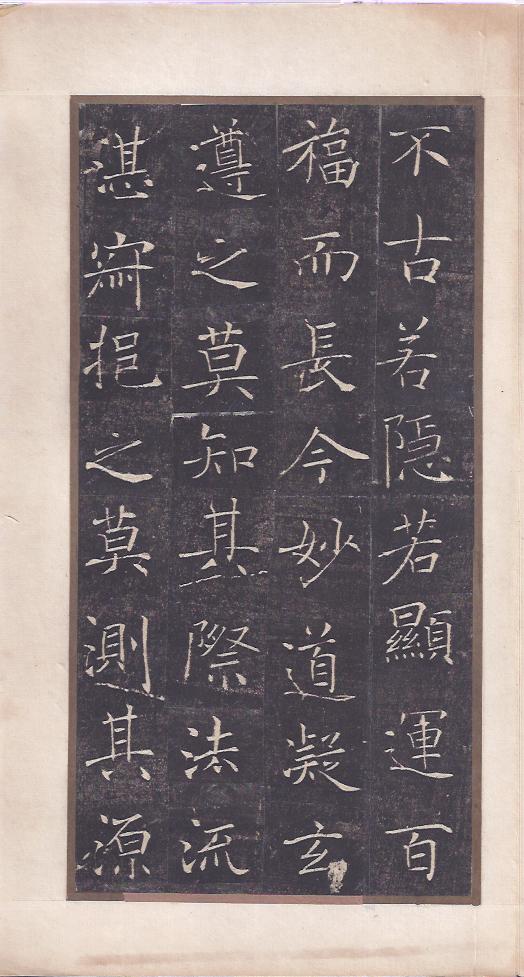 不古若隱若顯運百
福而長今妙道凝玄
遵之莫知其際法流
湛寂挹之莫測其源